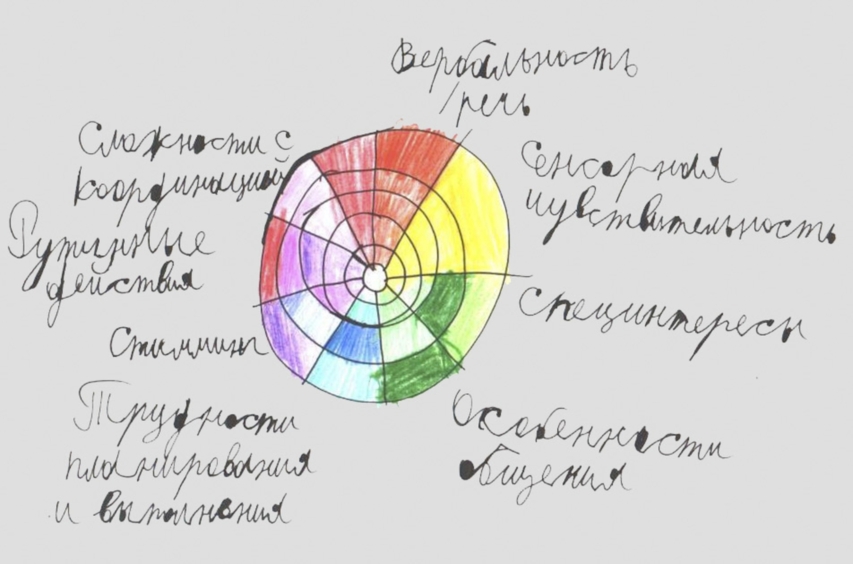 Вербальность
/речь
Сенсорная
чувствительность
Специнтересы
Особенности
общения
Трудности
планирования
и выполнения
Стимминг
Рутинные
действия
Сложности с
координацией